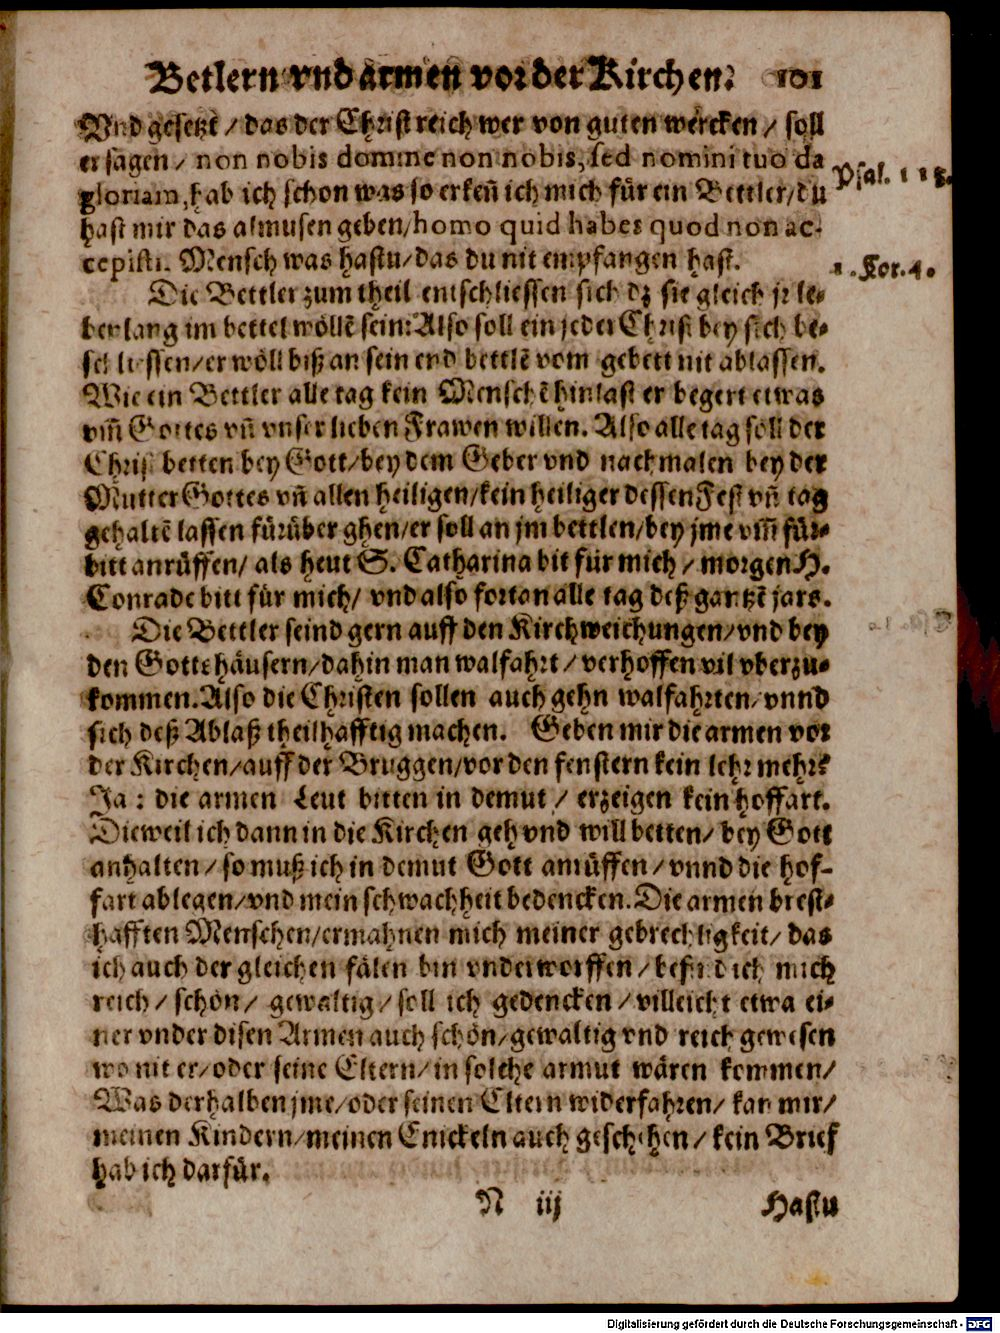 Betlern vnd armen vor der Kirchen? 101
Vnd gesetzt / das der Christ reich wer von guten wercken / soll
er sagen / non nobis domine non nobis, sed nomini tuo da
gloriam, hab ich schon was so erkeñ ich mich für ein Bettler / du
Psal. 113.
hast mir das almusen geben / homo quid habes quod non ac-
cepisti. Mensch was hastu / das du nit empfangen hast.
1. Kor. 4.
Die Bettler zum theil entschliessen sich dz sie gleich jr le-
ber lang im bettel wöllē sein: Also soll ein jeder Christ bey sich be-
schliessen / er wöll biß an sein end bettlē vom gebett nit ablassen.
Wie ein Bettler alle tag kein Menschē hinlast er begert etwas
vm̃ Gottes vñ vnser lieben Frawen willen. Also alle tag soll der
Christ betten bey Gott / bey dem Geber vnd nachmalen bey der
Mutter Gottes vñ allen heiligen / kein heiliger dessen Fest vñ tag
gehaltē lassen fürüber ghen / er soll an jm bettlen / bey jme vm̃ für-
bitt anrüffen / als heut S. Catharina bit für mich / morgen H.
Conrade bitt für mich / vnd also fortan alle tag deß gantzē jars.
Die Bettler seind gern auff den Kirchweichungen / vnd bey
den Gottshäusern / dahin man walfahrt / verhoffen vil vberzu-
kommen. Also die Christen sollen auch gehn walfahrten / vnnd
sich deß Ablaß theilhafftig machen. Geben mir die armen vor
der Kirchen / auff der Bruggen / vor den fenstern kein lehr mehr?
Ja: die armen Leut bitten in demut / erzeigen kein hoffart.
Dieweil ich dann in die Kirchen geh vnd will betten / bey Gott
anhalten / so muß ich in demut Gott anrüffen / vnnd die hof-
fart ablegen / vnd mein schwachheit bedencken. Die armen brest-
hafften Menschen / ermahnen mich meiner gebrechligkeit / das
ich auch der gleichen fälen bin vnderworffen / befind ich mich
reich / schön / gewaltig / soll ich gedencken / villeicht etwa ei-
ner vnder disen Armen auch schön / gewaltig vnd reich gewesen
wo nit er / oder seine Eltern / in solche armut wären kommen /
Was derhalben jme / oder seinen Eltern widerfahren / kan mir /
meinen Kindern / meinen Enickeln auch geschehen / kein Brief
hab ich darfür.
N iij Hastu
Digitalisierung gefördert durch die Deutsche Forschungsgemeinschaft - DFG